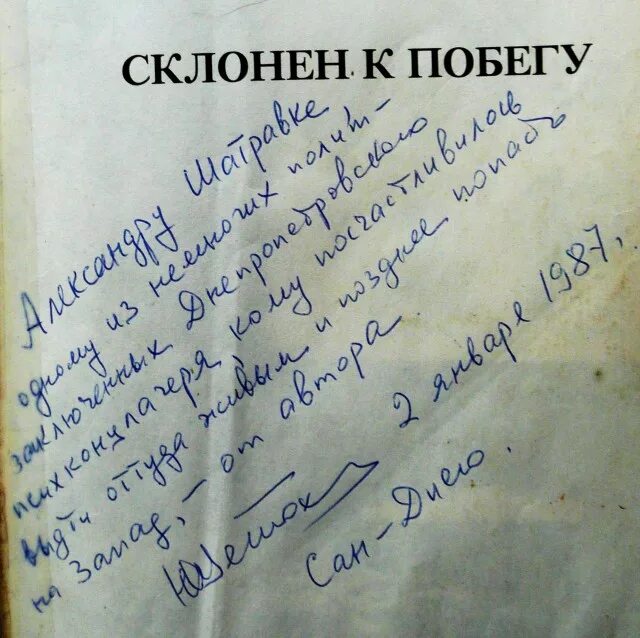 СКЛОНЕН К ПОБЕГУ
Александру Шатравке
одному из немногих полит-
заключенных Днепропетровского
психконцлагеря кому посчастливилось
выдти оттуда живым и позднее попасть
на Запад, – от автора.
2 января 1987,
Сан-Диего.